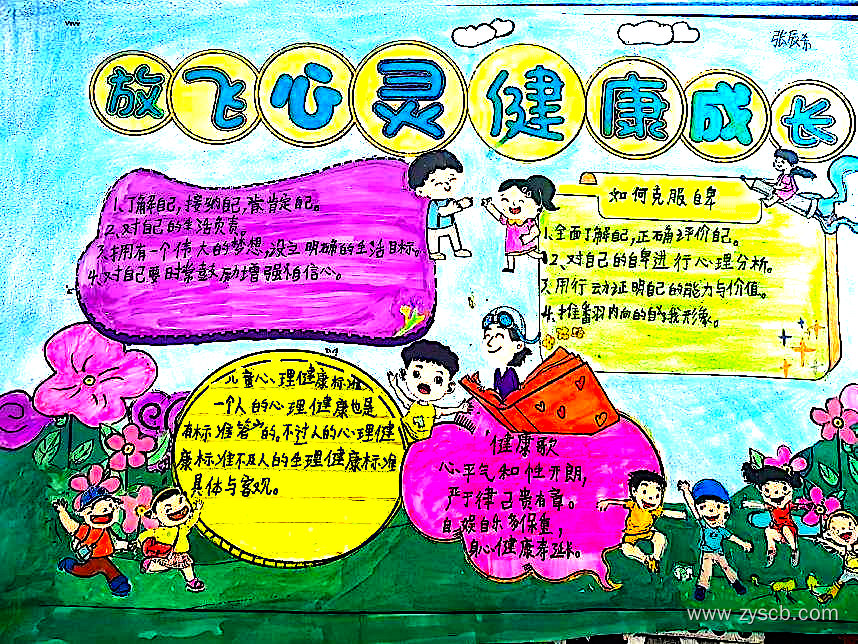 放飞心灵健康成长
张辰希
1、了解自己,接纳自己,肯定自己。
2、对自己的生活负责。
3、拥有一个伟大的梦想,设立明确的生活目标。
4、对自己要时常鼓励增强自信心。
如何克服自卑
1、全面了解自己,正确评价自己。
2、对自己的自卑进行心理分析。
3、用行动证明自己的能力与价值。
4、推翻内向的自我形象。
儿童心理健康标准
一个人的心理健康也是
有标准的。不过人的心理健
康标准不及人的生理健康标准
具体与客观。
健康歌
心平气和性开朗,
严于律己贵有章。
自娱自乐多保重,
身心健康寿延长。
www.zyscb.com